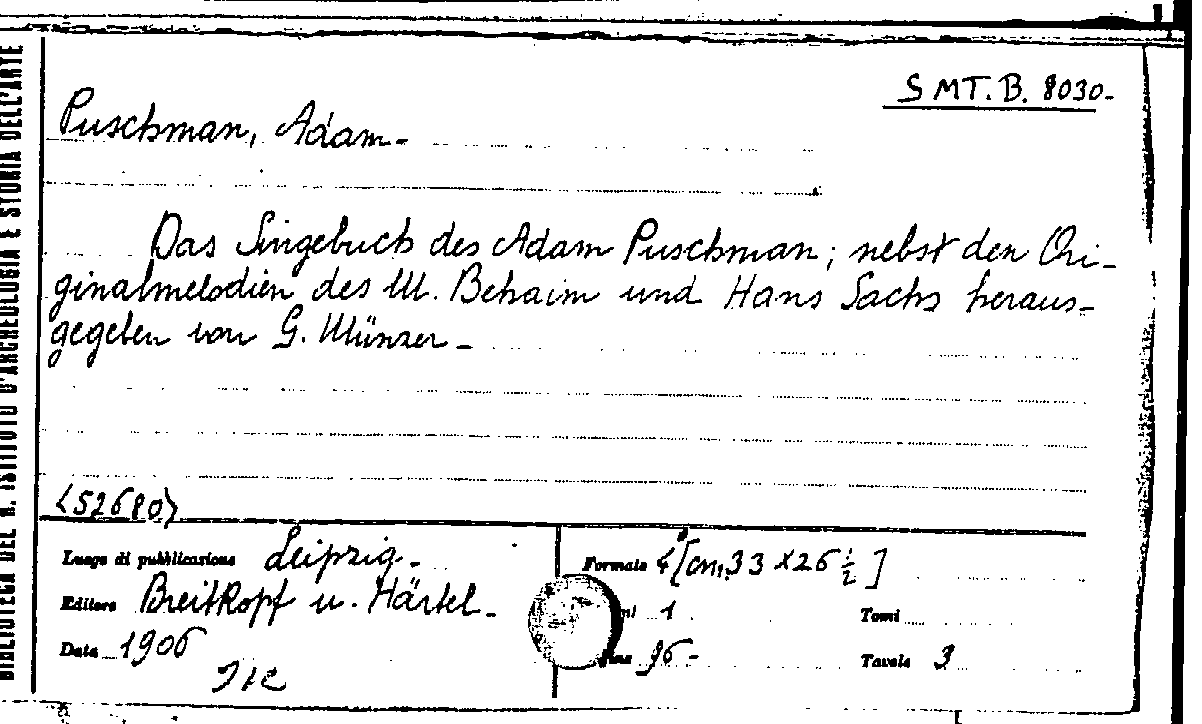 S MT. B. 8030-
Puschman, Adam-
Das Singebuch des Adam Puschman; nebst den Ori-
ginalmelodien des M. Behaim und Hans Sachs heraus-
gegeben von G. Münzer-
<52680>
Luogo di pubblicazione Leipzig-
Editore Breitkopf u. Härtel-
Data 1906
Formato 4° [cm. 33 x 26 ½]
1 Tomi
96- Tavole 3
BIBLIOTECA DEL R. ISTITUTO D'ARCHEOLOGIA E STORIA DELL'ARTE